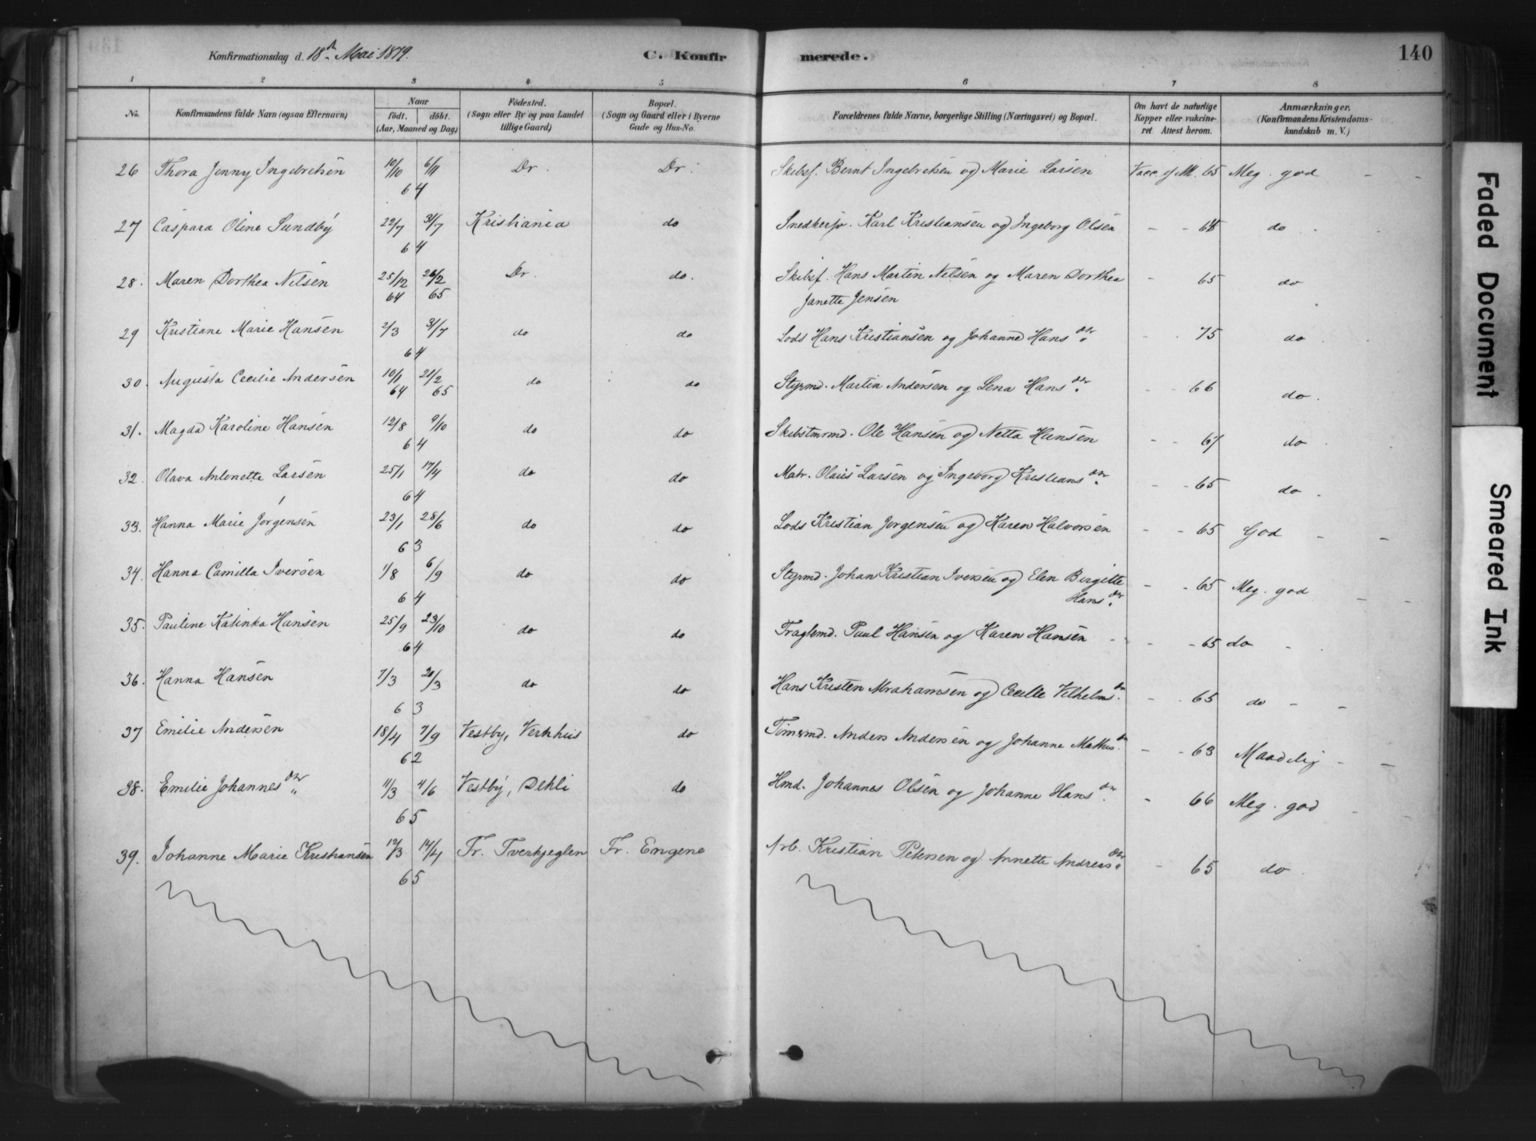 Konfirmationsdag d. 18de Mai 1879.
C. Konfirmerede.
140
1 2 3 4 5 6 7 8
No.
Konfirmandens fulde Navn (ogsaa Efternavn)
Naar
födt. döbt.
(Aar, Maaned og Dag)
Födested.
(Sogn eller By og paa Landet
tillige Gaard)
Bopæl.
(Sogn og Gaard eller i Byerne
Gade og Hus-No.
Forældrenes fulde Navne, borgerlige Stilling (Næringsvei) og Bopæl.
Om havt de naturlige
Kopper eller vakcine-
ret Attest herom.
Anmærkninger.
(Konfirmandens Kristendoms-
kundskab m. V.)
26 Thora Jenny Ingebretsen 10/10 6/11 Dr. Dr. Skibsf. Bernt Ingebretsen og Marie Larsen 65 Meg. god - -
64
27 Caspara Oline Sundby 22/7 31/7 Kristiania do Snedkersv. Karl Kristiansen og Ingeborg Olsen - - 68 do
64
28. Maren Dorthea Nilsen 25/12 26/2 Dr. do. Skibsf. Hans Martin Nilsen og Maren Dorthea - 65 do
64 65 Janette Jensen
29 Kristiane Marie Hansen 2/3 31/7 do do Lods Hans Kristiansen og Johanne Hansdtr. - 75 do
64
30. Augusta Cecilie Andersen 10/1 21/2 do do Styrmd. Martin Andersen og Lena Hansdtr. - - 66 do.
64 65
31. Magda Karoline Hansen 12/8 9/10 do do Skibstmrmd. Ole Hansen og Netta Hansen - - 67 do
64
32. Olava Antonette Larsen 25/1 17/4 do do Matr. Olaus Larsen og Ingeborg Kristiansdtr. - - 65 do
64
33. Hanna Marie Jørgensen 23/1 28/6 do do Lods Kristian Jørgensen og Karen Halvorsen - - 65 God - -
63
34. Hanna Camilla Iversen 1/8 6/9 do do Styrmd. Johan Kristian Iversen og Elen Birgitte - - 65 Meg. god - -
64 Hansdtr.
35. Pauline Katinka Hansen 25/9 23/10 do do Fragtmd. Paul Hansen og Karen Hansen - - 65 do -
64
36. Hanna Hansen 7/3 20/3 do do Hans Kristen Abrahamsen og Cecilie Vilhelmsdtr. - 65 do - -
63
37 Emilie Andersen 18/4 7/9 Vestby, Verkhus do Tømrmd. Anders Andersen og Johanne Mathisdtr. - - 63 Maadelig - -
62
38. Emilie Johannesdtr. 11/3 4/6 Vestby, Dehli do Hmd. Johannes Olsen og Johanne Hansdtr. - 66 Meg. god -
65
39. Johanne Marie Kristiansen 12/3 14/4 Fr. Tverkjeglen Fr. Engene Arb. Kristian Petersen og Annette Andreasdtr. - 65 do
65
Faded Document
Smeared Ink